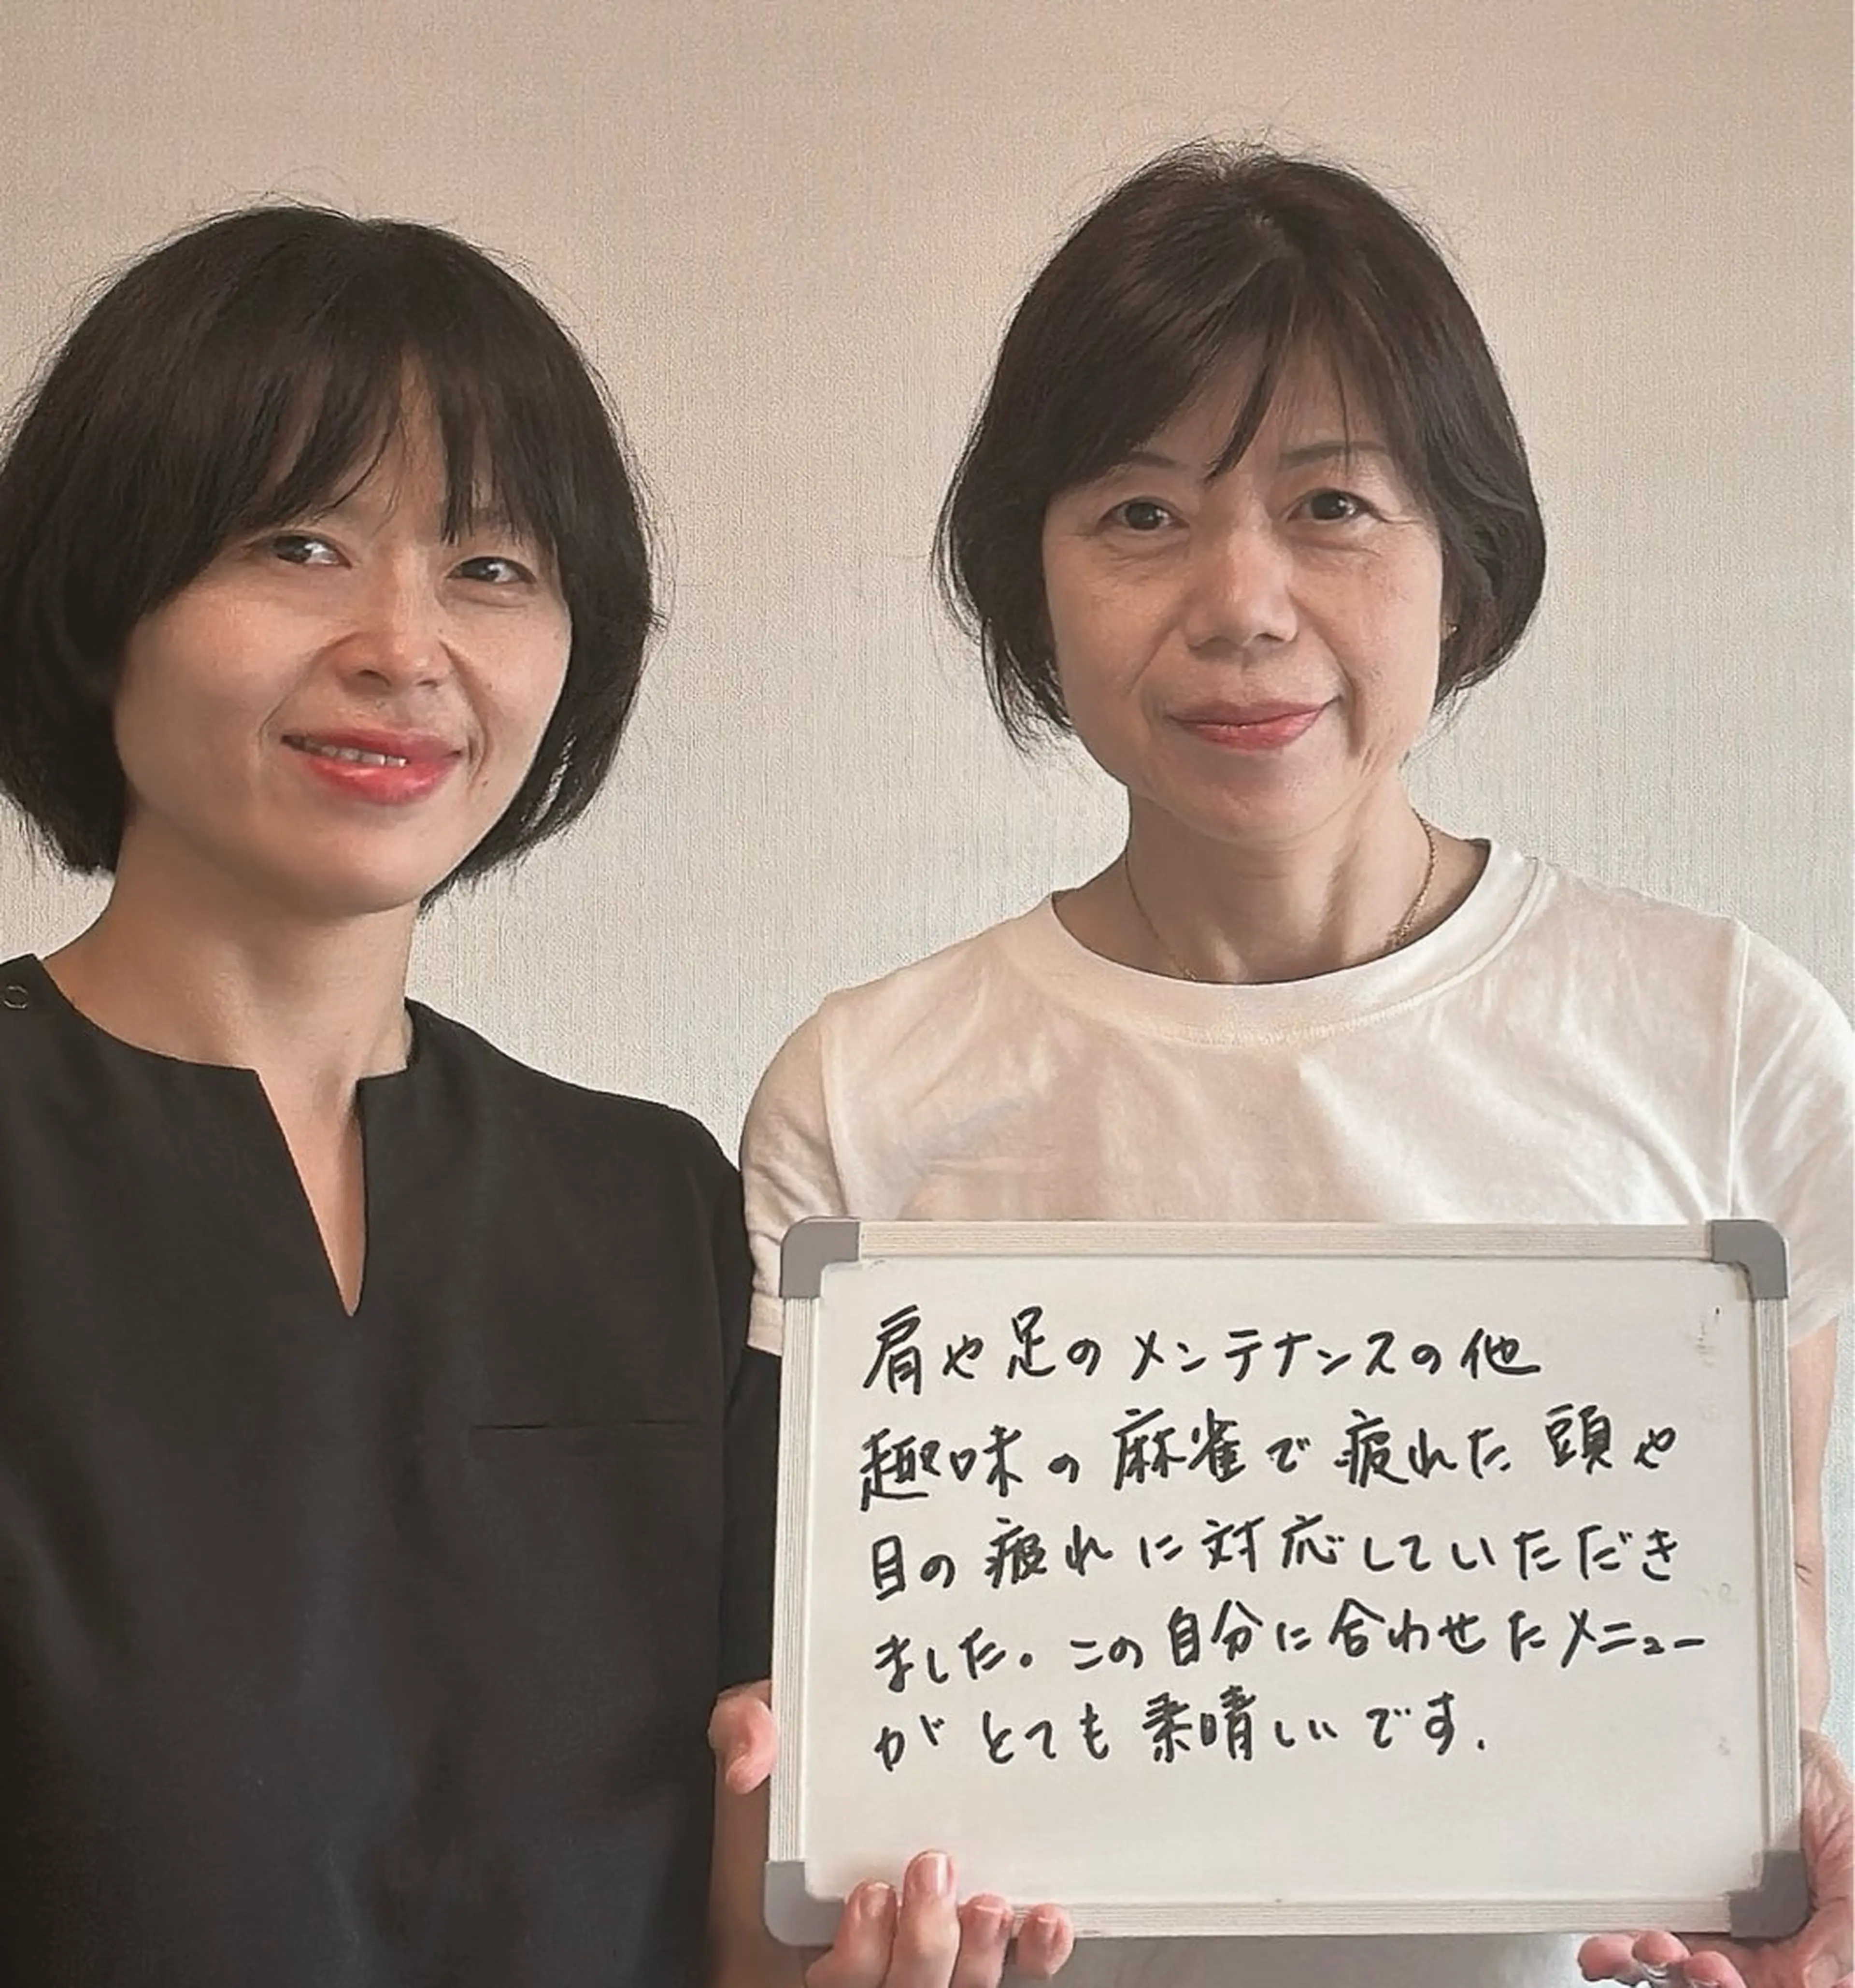 肩や足のメンテナンスの他
趣味の麻雀で疲れた頭や
目の疲れに対応していただき
ました。この自分に合わせたメニュー
がとても素晴しいです.